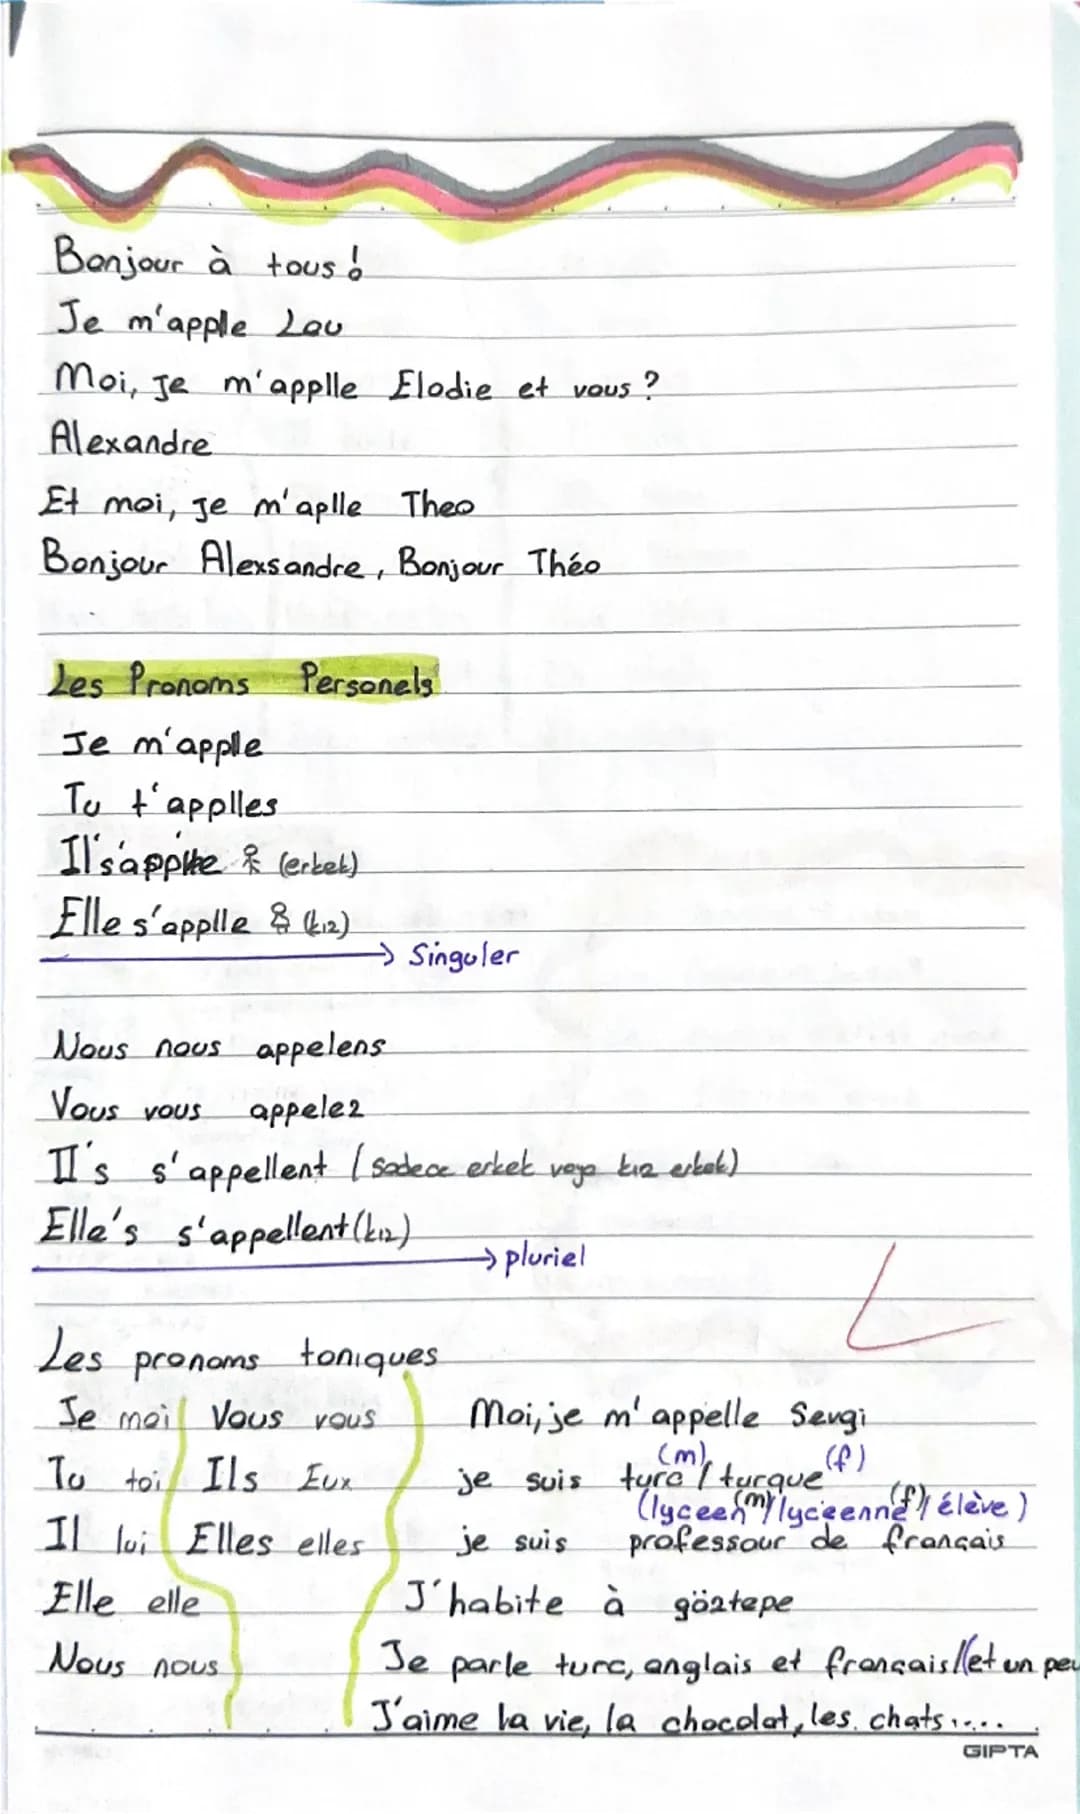 Bonjour à tous!
Je m'apple Lou
Moi, je m'applle Elodie et vous?
Alexandre
Et moi, je m'aplle Theo
Bonjour Alexsandre, Bonjour Théo
Les Pronoms Personels
Je m'apple
Tu t'applles
Il s'applle (erkek)
Elle s'applle (kız)
→ Singuler
Nous nous appelens
Vous vous appelez
Il's s'appellent (sadece erkek veya kız erkek)
Elle's s'appellent (kız)
→ pluriel
Les pronoms toniques
Je moi Vous vous
Tu toi Ils Eux
Il lui Elles elles
Elle elle
Nous nous
Moi, je m'appelle Sevgi
(m) (f)
je suis turc / turque
(lyceen(m)/lyceenne(f)/ élève)
je suis professour de français
J'habite à göztepe
Je parle turc, anglais et français/(et un peu
J'aime la vie, la chocolat, les chats.....
GIPTA